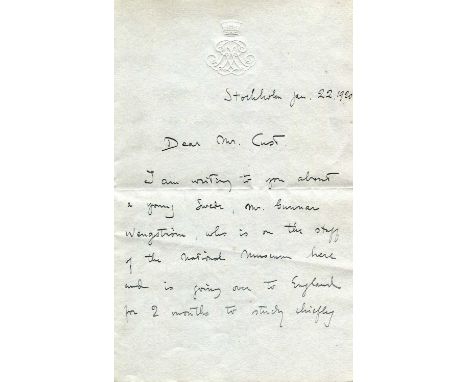 Stockholm Jan. 22. 1920
Dear Mr. Cust
I am writing to you about
a young Swede, Mr. Gunnar
Wengström, who is on the staff
of the National Museum here
and is going over to England
for 2 months to study chiefly